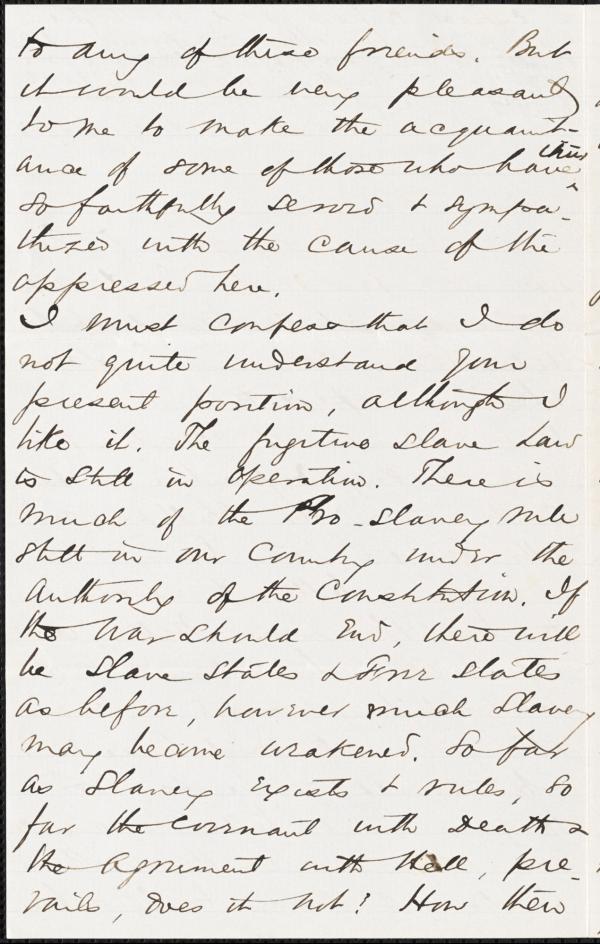 to any of these friends. But
it would be very pleasant
to me to make the acquaint-
ance of some of those who have thus
so faithfully served & sympa-
thized with the cause of the
oppressed here.
I must confess that I do
not quite understand your
present position, although I
like it. The fugitive slave Law
is still in operation. There is
much of the Pro-slavery rule
still in our Country under the
Authority of the Constitution. If
the War should End, there will
be slave states & Free states
as before, however much Slavery
may become weakened. So far
as Slavery exists & rules, so
far the Covenant with Death &
the Agreement with Hell, pre-
vails, does it not? How then